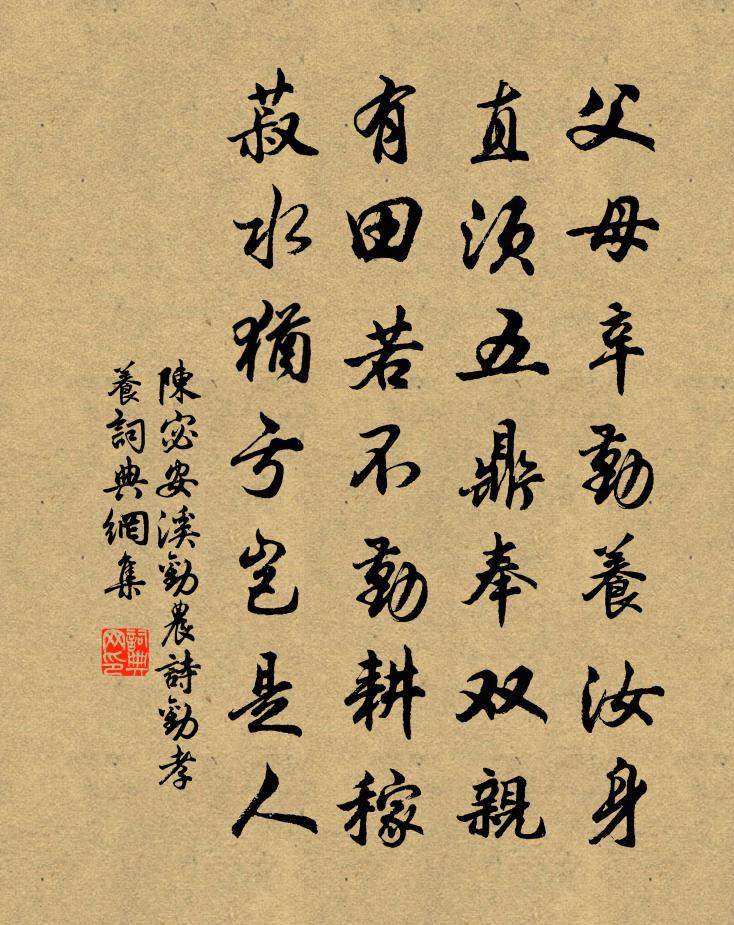 父母辛勤養汝身
直須五鼎奉双親
有田若不勤耕稼
菽水猶亏豈是人
陳宓安溪勸農詩勸孝
養詞典網集
詞典
网印